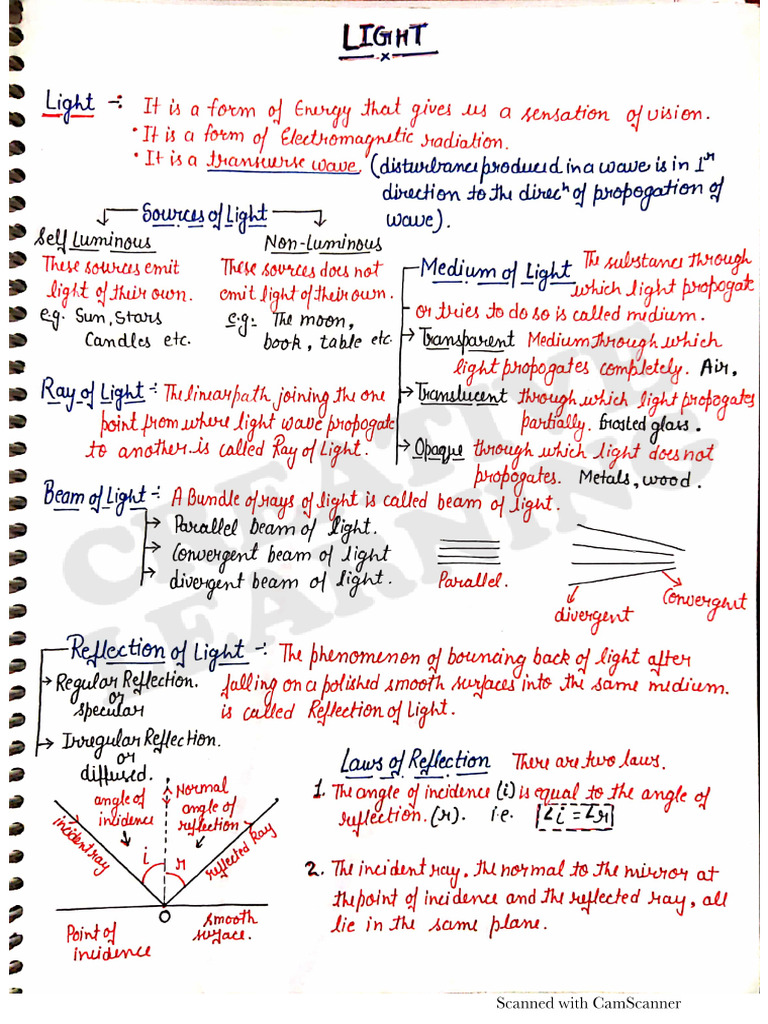 LIGHT
Light -: It is a form of Energy that gives us a sensation of vision.
• It is a form of Electromagnetic radiation.
• It is a transverse wave. (disturbance produced in a wave is in Ir
direction to the direcn of propogation of
wave).
Sources of Light
Self Luminous
These sources emit
light of their own.
e.g. Sun, Stars
Candles etc.
Non-Luminous
These sources does not
emit light of their own.
e.g:- The moon,
book, table etc.
Medium of Light The substance through
which light propogate
or tries to do so is called midium.
→ Transparent Medium through which
light propogates completely. Air,
→ Translucent through which light propogates
partially. frosted glass.
→ Opaque through which light does not
propogates. Metals, wood.
Ray of Light -: The linear path joining the one
point from where light wave propogate
to another is called Ray of Light.
Beam of Light -: A Bundle of rays of light is called beam of light.
→ Parallel beam of light.
→ Convergent beam of light
→ divergent beam of light.
Parallel.
divergent
Convergent
Reflection of Light -: The phenomenon of bouncing back of light after
falling on a polished smooth surfaces into the same medium.
is called Reflection of Light.
→ Regular Reflection.
or
specular
→ Irregular Reflection.
or
diffused.
angle of
incidence
Normal
angle of
reflection
incident ray
reflected Ray
i
r
O
Point of
incidence
smooth
surface.
Laws of Reflection There are two laws.
1. The angle of incidence (i) is equal to the angle of
reflection. (r). i.e. ∠i = ∠r
2. The incident ray, the normal to the mirror at
the point of incidence and the reflected ray, all
lie in the same plane.
CREATIVE
LEARNING
Scanned with CamScanner